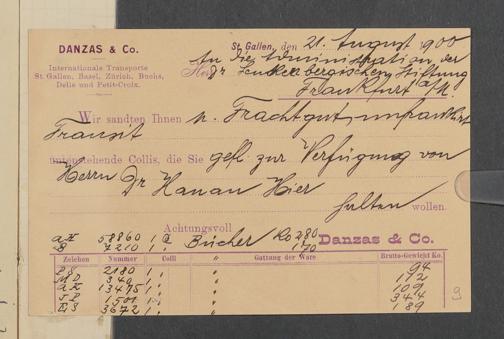 DANZAS & Co.
Internationale Transporte
St. Gallen, Basel, Zürich, Buchs,
Delle und Petit-Croix.
St. Gallen, den 21. August 1900
An die Administration der
Dr Senckenbergischen Stiftung
Frankfurt a/M.
Wir sandten Ihnen p. Frachtgut, unfrankirt
Transit
untenstehende Collis, die Sie gefl. zur Verfügung von
Herrn Dr Hanau Hier
halten wollen.
Achtungsvoll
Danzas & Co.
58860 1 Bücher Ko 280
7210 1 " 170
Zeichen Nummer Colli Gattung der Ware Brutto-Gewicht Ko.
2180 1 " 94
MD 349 1 " 172
13495 1 " 109
JP 1501 1 " 344
ES 3672 1 " 189
9